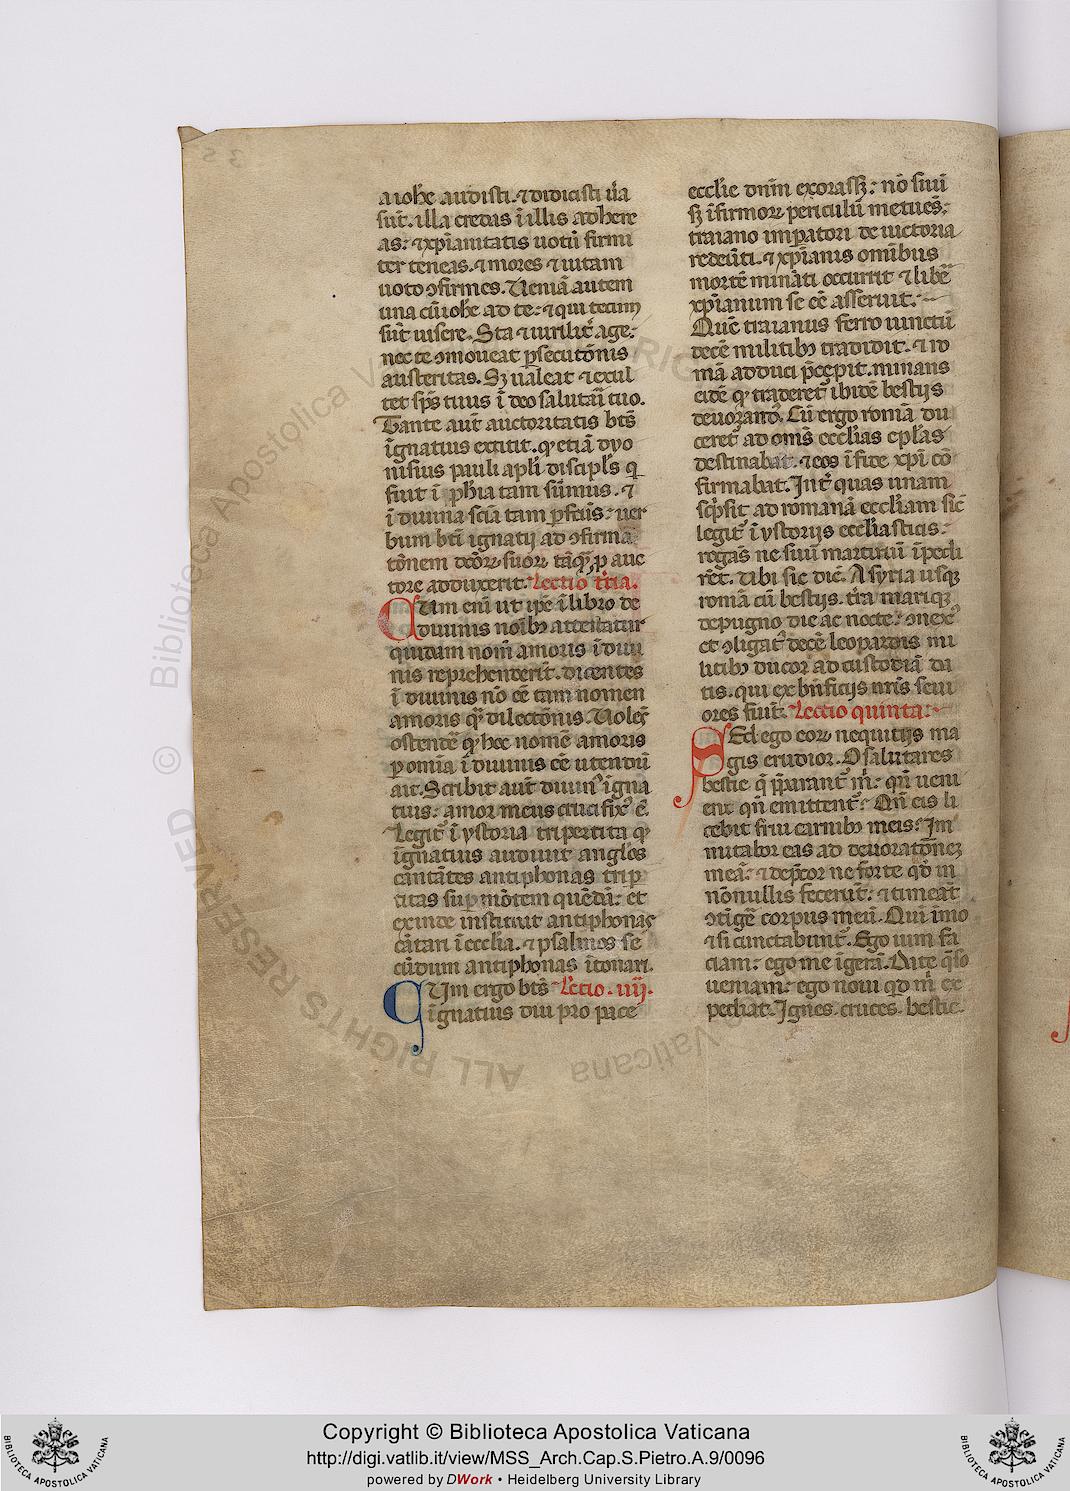 a ioh̄e audisti. ⁊ didicisti ṽa
sũt. illa credas ĩ illis adhere
as: ⁊ xp̃ianitatis uotũ firmi
ter teneas. ⁊ mores ⁊ uitam
uoto ɔfirmes. Veniã autem
una cũ ioh̄e ad te: ⁊ qui tecum
sũt uisere. Sta ⁊ uirilit̃ age:
nec te ɔmoueat p̱secutõnis
austeritas. Sꝫ ualeat ⁊ exul
tet sp̃s tuus ĩ deo salutari tuo.
Tante aut̃ auctoritatis bt̃s
ignatius extitit. ꝙ etiã dyo
nisius pauli apl̃i discipl̃s q̃
fuit ĩ ph̃ia tam sũmus. ⁊
ĩ diuina sciã tam p̱fctũs: uer
bum bt̃i ignatij ad ɔfirma
tõnem dc̃oꝝ suoꝝ tãꝙ̃ p̱ auc
tore adduxerit. Lectio tr̃ia.
Tam eni᷒ ut ip̃e ĩ libro de
diuinis noĩbꝫ attestatur
quidam nom̃ amoris ĩ diui
nis reprehenderũt. dicentes
ĩ diuinis nõ eẽ tam nomen
amoris q̃ dilectõnis. Volẽs
ostendẽ ꝙ hoc nomẽ amoris
p̱ omnia ĩ diuinis eẽ utendũ
ait. Scribit aut̃ diuin᷒ igna
tius: amor meus crucifix᷒ ẽ.
Legit᷒ ĩ ystoria tripertita ꝙ
ignatius audiuit angl̃os
cantãtes antiphonas trip̱
titas sup̱ mõtem quẽdã: et
exinde instituit antiphonas
cãtari ĩ eccl̃ia. ⁊ psalmos se
cũdum antiphonas ĩtonari.
Cum ergo bt̃s Lc̃tio. iiij.
ignatius diu pro pace
eccl̃ie dnm̃ exorassꝫ: nõ sui
sꝫ ĩfirmoꝝ periculũ metuẽs:
traiano imp̱atori de uictoria
redeũti. ⁊ xp̃ianis omĩbus
mortẽ mināti occurrit ⁊ libẽ
xp̃ianum se eẽ asseruit.
Quẽ traianus ferro uinctũ
decẽ militibꝫ tradidit. ⁊ ro
mã adduci p̃cepit. minans
eidẽ ꝙ traderet᷒ ibidẽ bestijs
deuorand᷒. Cũ ergo romã du
ceret᷒ ad om̃s eccl̃ias epl̃as
destinabat. ⁊ eos ĩ fide xp̃i cõ
firmabat. Int̃ quas unam
sc̃psit ad romanã eccl̃iam sic̃
legit᷒ ĩ ystorijs eccl̃iasticis:
rogãs ne suũ martiriũ ĩpedi
rẽt. Vbi sic diẽ. A syria usqꝫ
romã cũ bestijs. tr̃a mariqꝫ
depugno die ac nocte: ɔnex᷒
et ɔligat᷒ decẽ leopardis mi
litibꝫ dũcor ad custodiã da
tis. qui ex bñficijs nr̃is seui
ores fiũt. Lectio quinta:
Sed ego eoꝝ nequitijs ma
gis erudior. O salutares
bestie q̃ p̃parant᷒ m̃: qñ ueni
ent qñ emittent᷒: Qñ eis li
cebit frui carnibꝫ meis: Im
mutabor eas ad deuoratõnez
meã: ⁊ dep̃cor ne forte qd̃ in
nõnullis fecerũt: ⁊ timeãt
ɔtigẽ corpus meũ. Qui ĩmo
⁊ si cunctabunt᷒. Ego uim fa
ciam: ego me ĩgerã. Dãte q̃so
ueniam: ego noui qd̃ m̃ ex
pediat. Ignes. cruces. bestie
Copyright © Biblioteca Apostolica Vaticana
http://digi.vatlib.it/view/MSS_Arch.Cap.S.Pietro.A.9/0096
powered by DWork • Heidelberg University Library